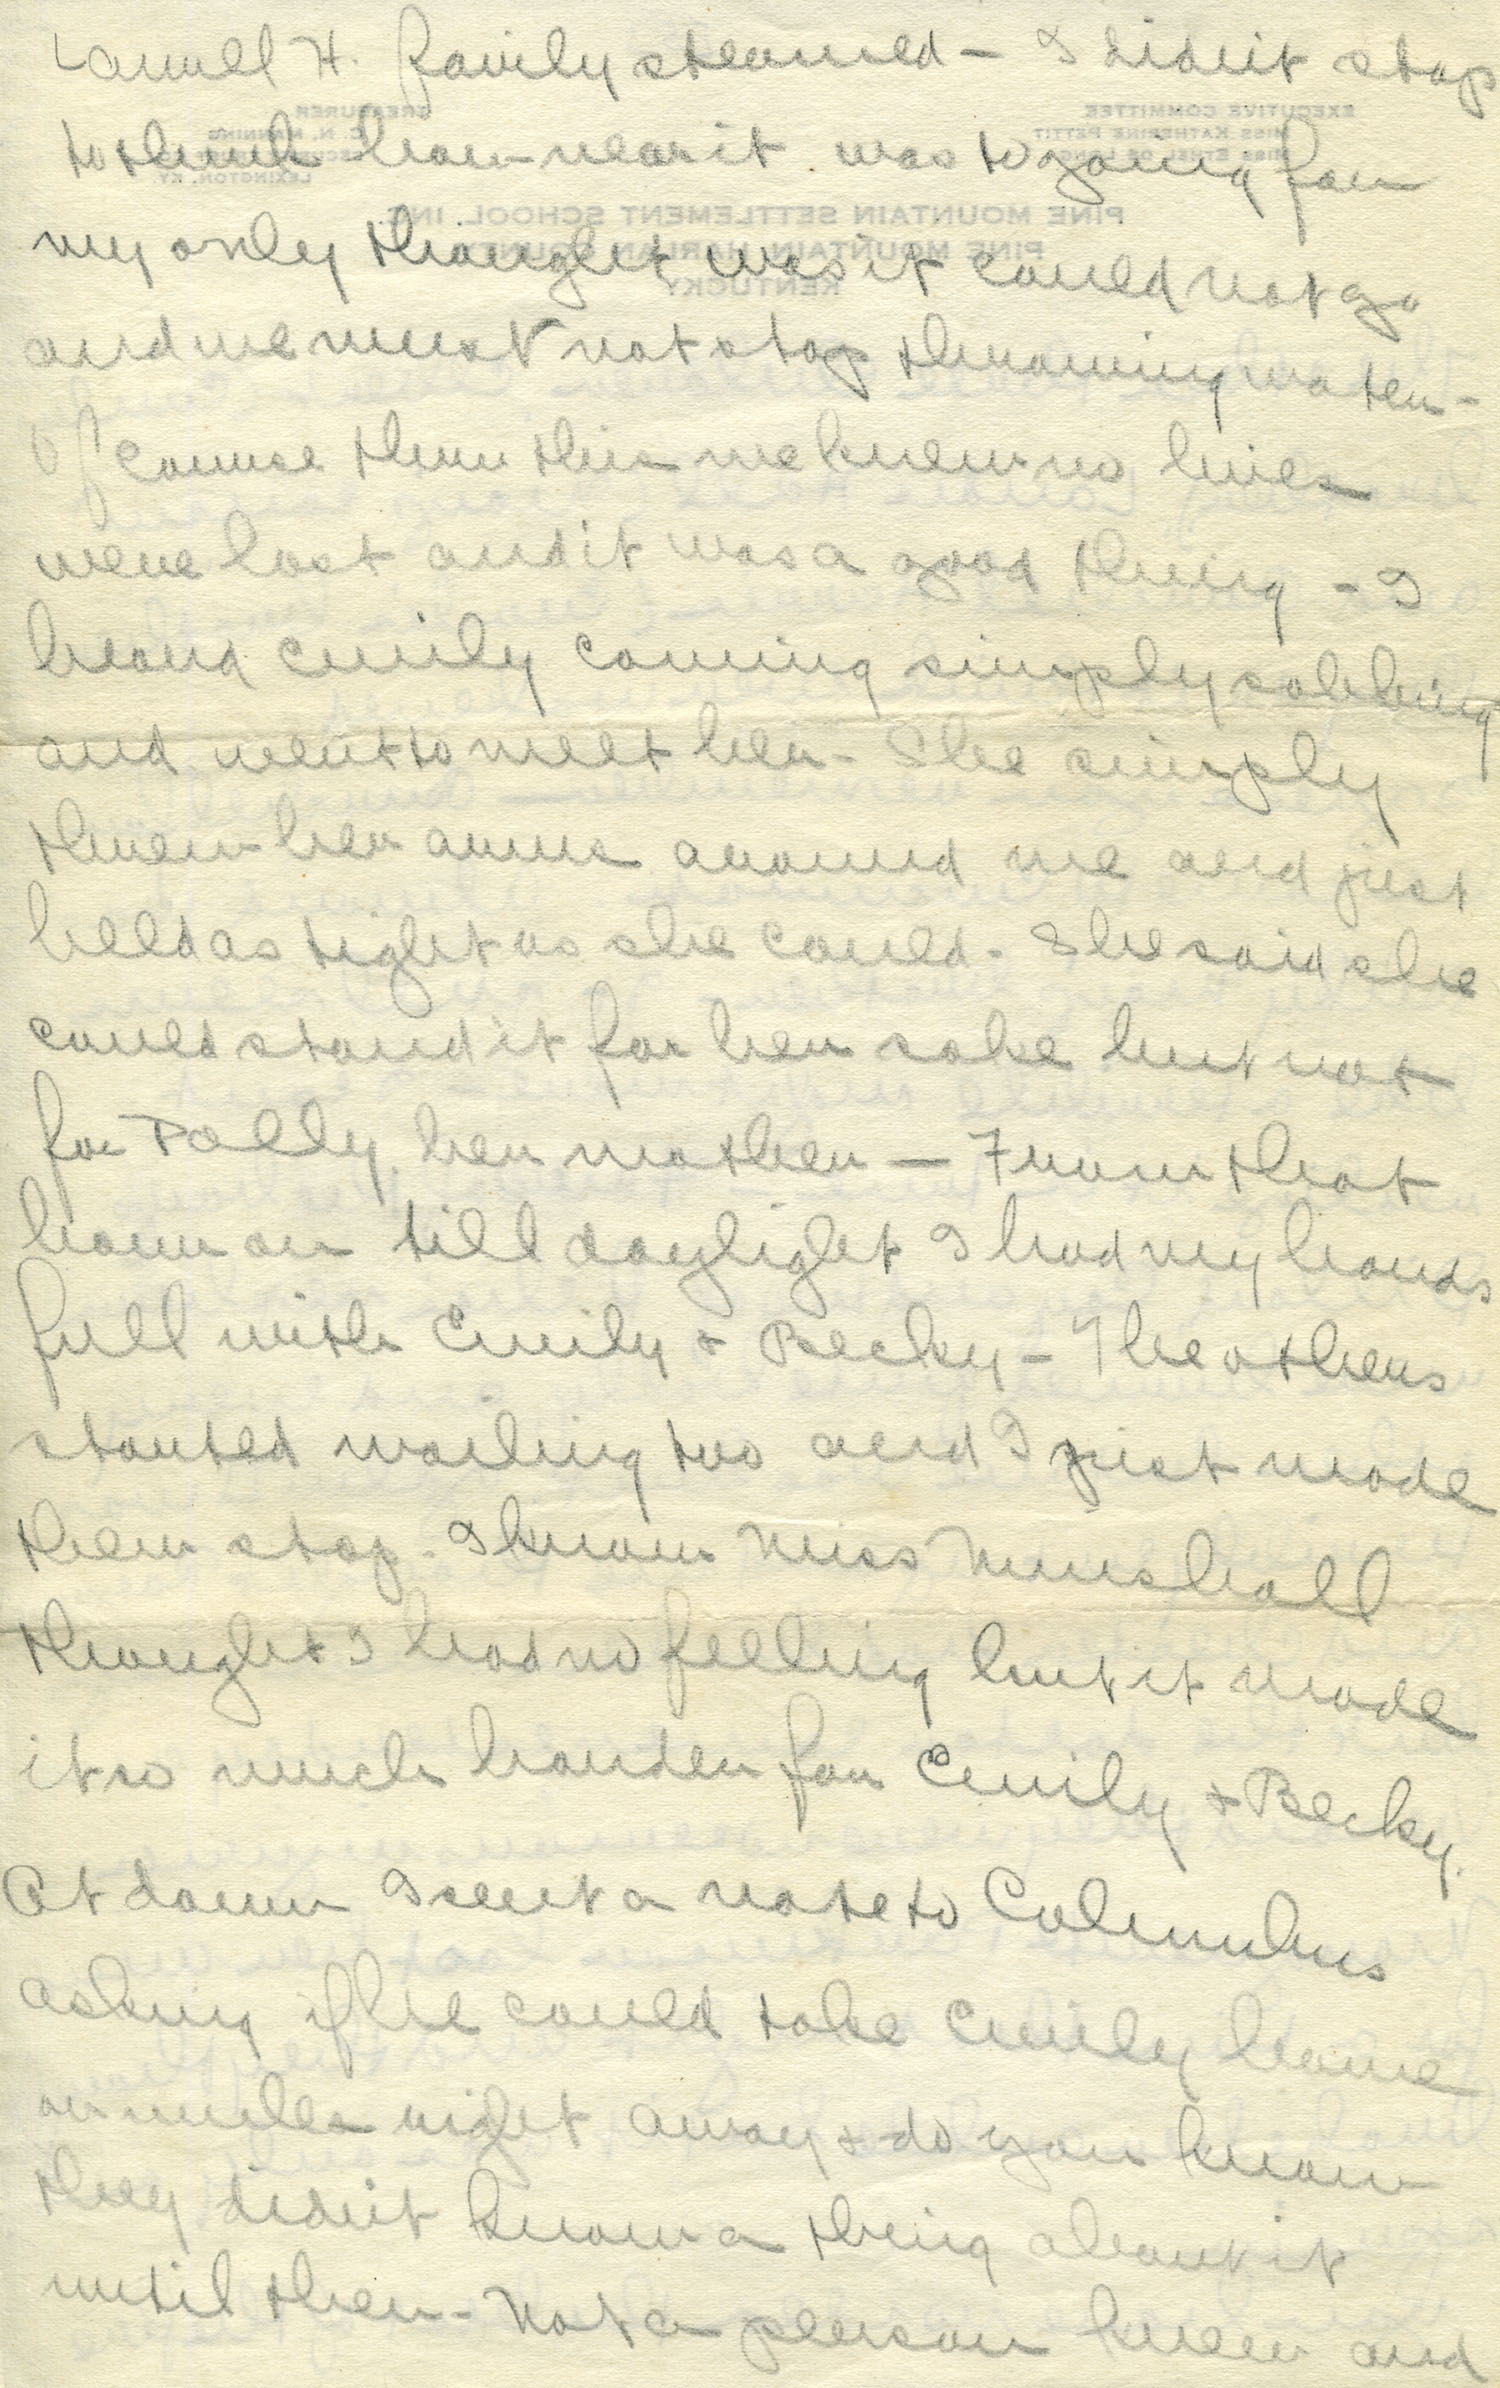 Laurel H. fairly steamed - I didn't stop
to think how near it was to going for
my only thought was it could not go
and we must not stop throwing water -
Of course thru this we knew no lives
were lost and it was a good thing - I
heard Emily coming simply sobbing
and went to meet her - She simply
threw her arms around me and just
held as tight as she could - She said she
could stand it for her sake but not
for Polly, her mother — From that
hour on till daylight I had my hands
full with Emily + Becky - The others
started wailing too and I just made
them stop. I know Miss
thought I had no feeling but it made
it so much harder for Emily + Becky.
At dawn I sent a note to Columbus
asking if he could take Emily home
on mules right away + do you know
they didn't know a thing about it
until then - Not a person knew and
EXECUTIVE COMMITTEE
MISS KATHERINE PETTIT
MISS ETHEL DE LONG
TREASURER
C. N. MANNING
LEXINGTON, KY.
PINE MOUNTAIN SETTLEMENT SCHOOL INC.
PINE MOUNTAIN, HARLAN COUNTY
KENTUCKY